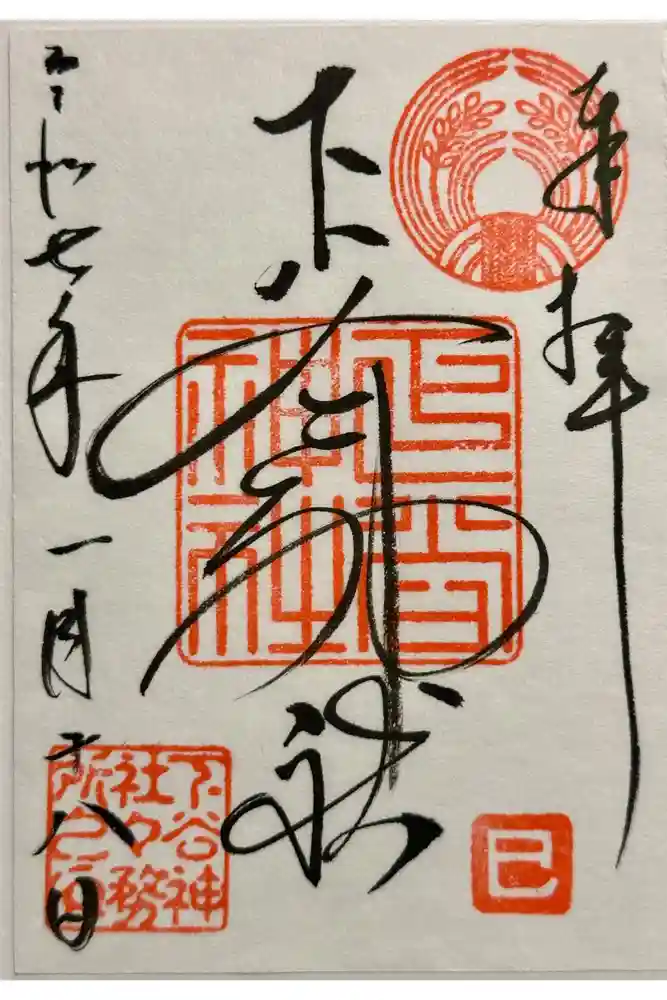 奉拝
下谷神社
下谷
神社
巳
令和七年一月十八日
下谷神
社々務
所之印